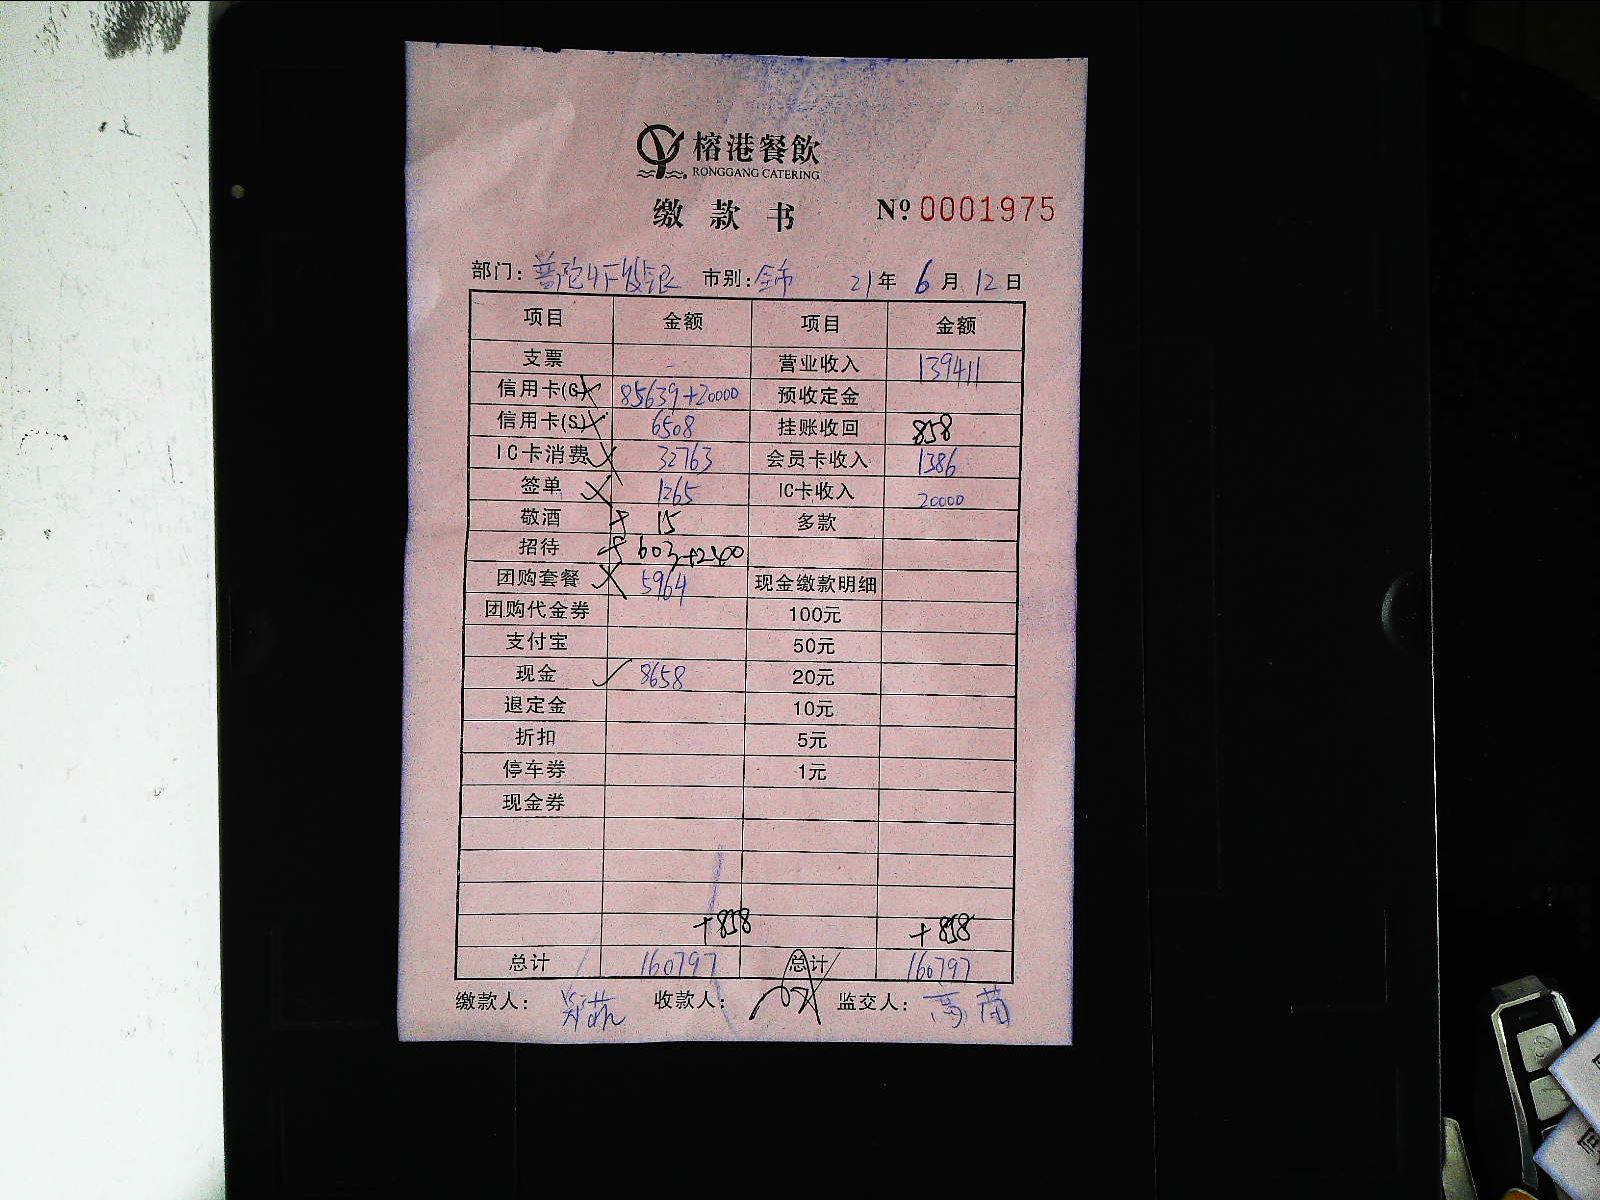 榕港餐飲
RONGGANG CATERING
缴款书 Nº 0001975
部门: 普陀 市别: 全市 21年 6月 12日
项目 金额 项目 金额
支票 - 营业收入 139411
信用卡(G) 85639+20000 预收定金
信用卡(S) 6508 挂账收回 858
IC卡消费 32763 会员卡收入 1386
签单 1265 IC卡收入 20000
敬酒 15 多款
招待
团购套餐 5964 现金缴款明细
团购代金券 100元
支付宝 50元
现金 ✓ 8658 20元
退定金 10元
折扣 5元
停车券 1元
现金券
+858 +858
总计 160797 总计 160797
缴款人: 收款人: 监交人: